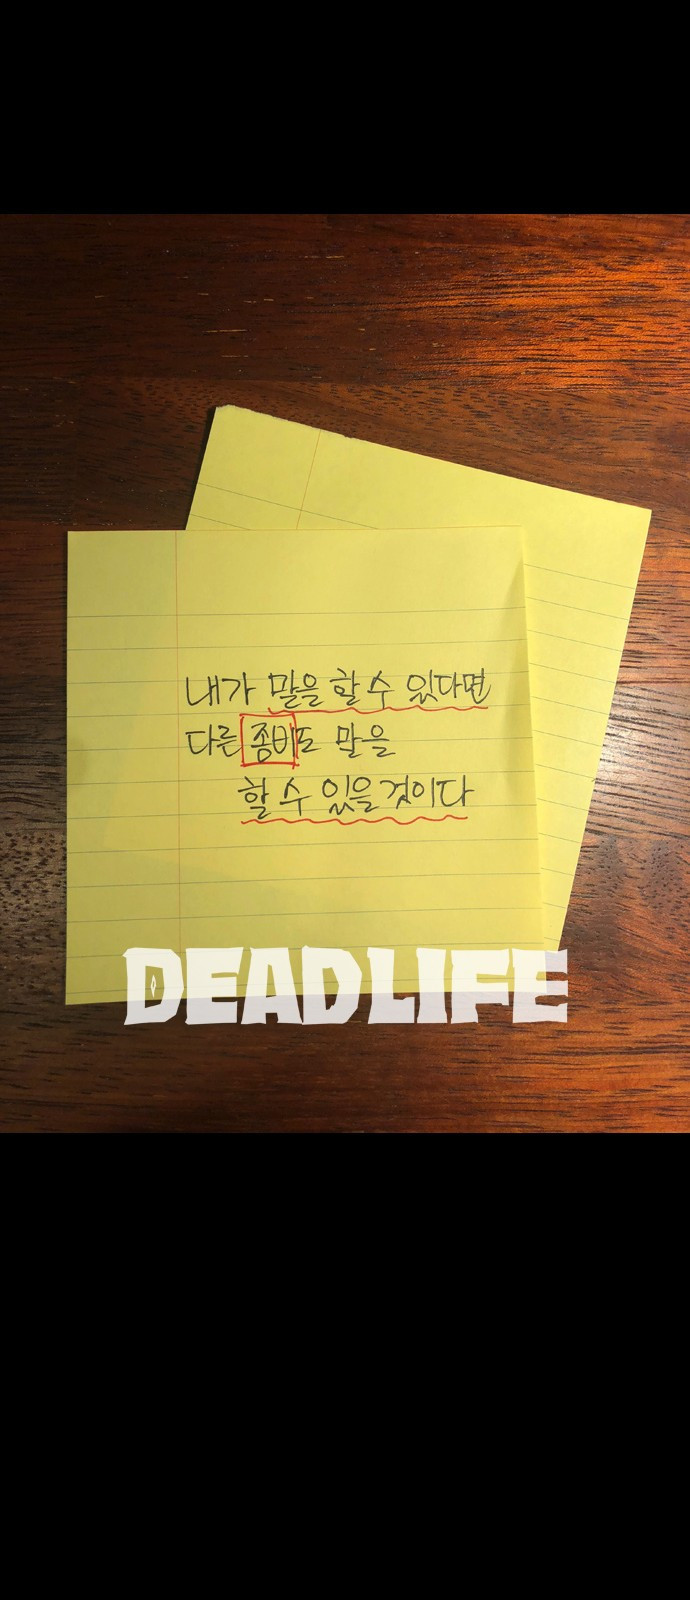 내가 말을 할 수 있다면
다른 좀비도 말을
할 수 있을 것이다
DEADLIFE